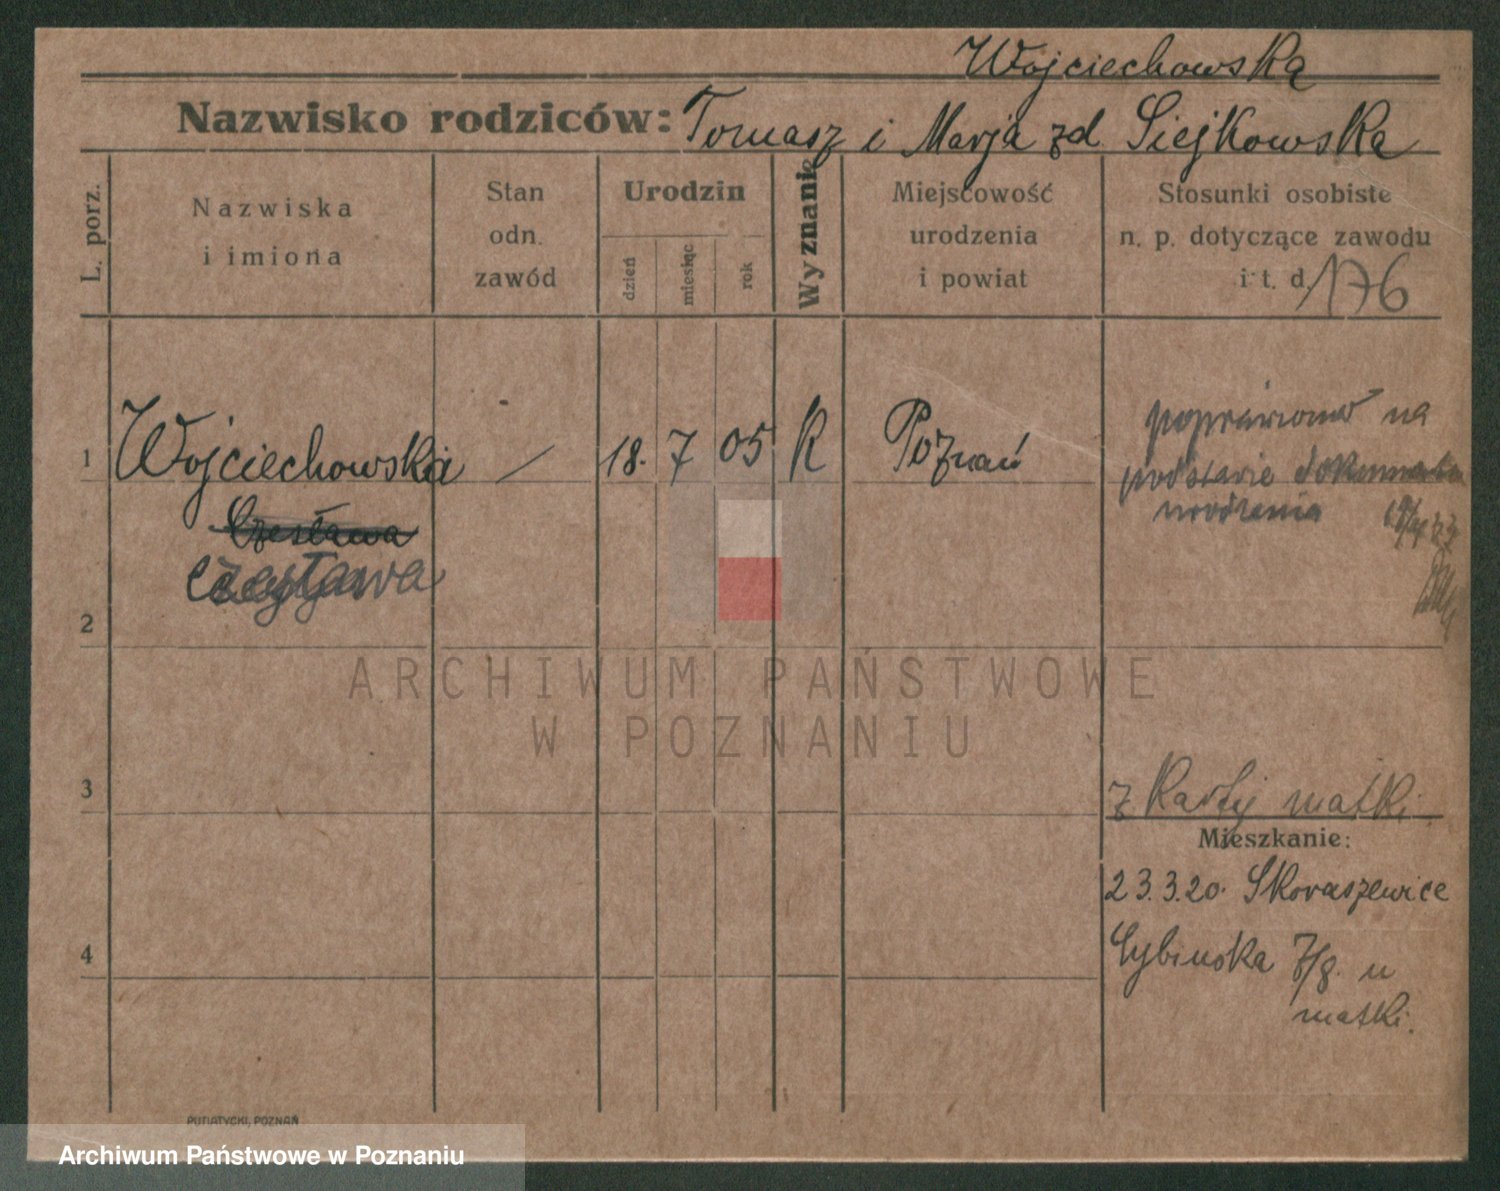 Wojciechowska
Nazwisko rodziców: Tomasz i Marja zd Siejkowska
L. porz.
Nazwiska
i imiona
Stan
odn.
zawód
Urodzin
dzień
miesiąc
rok
Wyznanie
Miejscowość
urodzenia
i powiat
Stosunki osobiste
n. p. dotyczące zawodu
i t. d.
176
1 Wojciechowska / 18. 7 05 R Poznań
Czesława
Czesława
poprawiono na
podstawie dokumentu
urodzenia
2
3
z Karty matki.
Mieszkanie:
23.3.20. Skoraszewice
4
Rybińska 7/8. u
matki.
PUTIATYCKI, POZNAŃ
ARCHIWUM PAŃSTWOWE
W POZNANIU
Archiwum Państwowe w Poznaniu